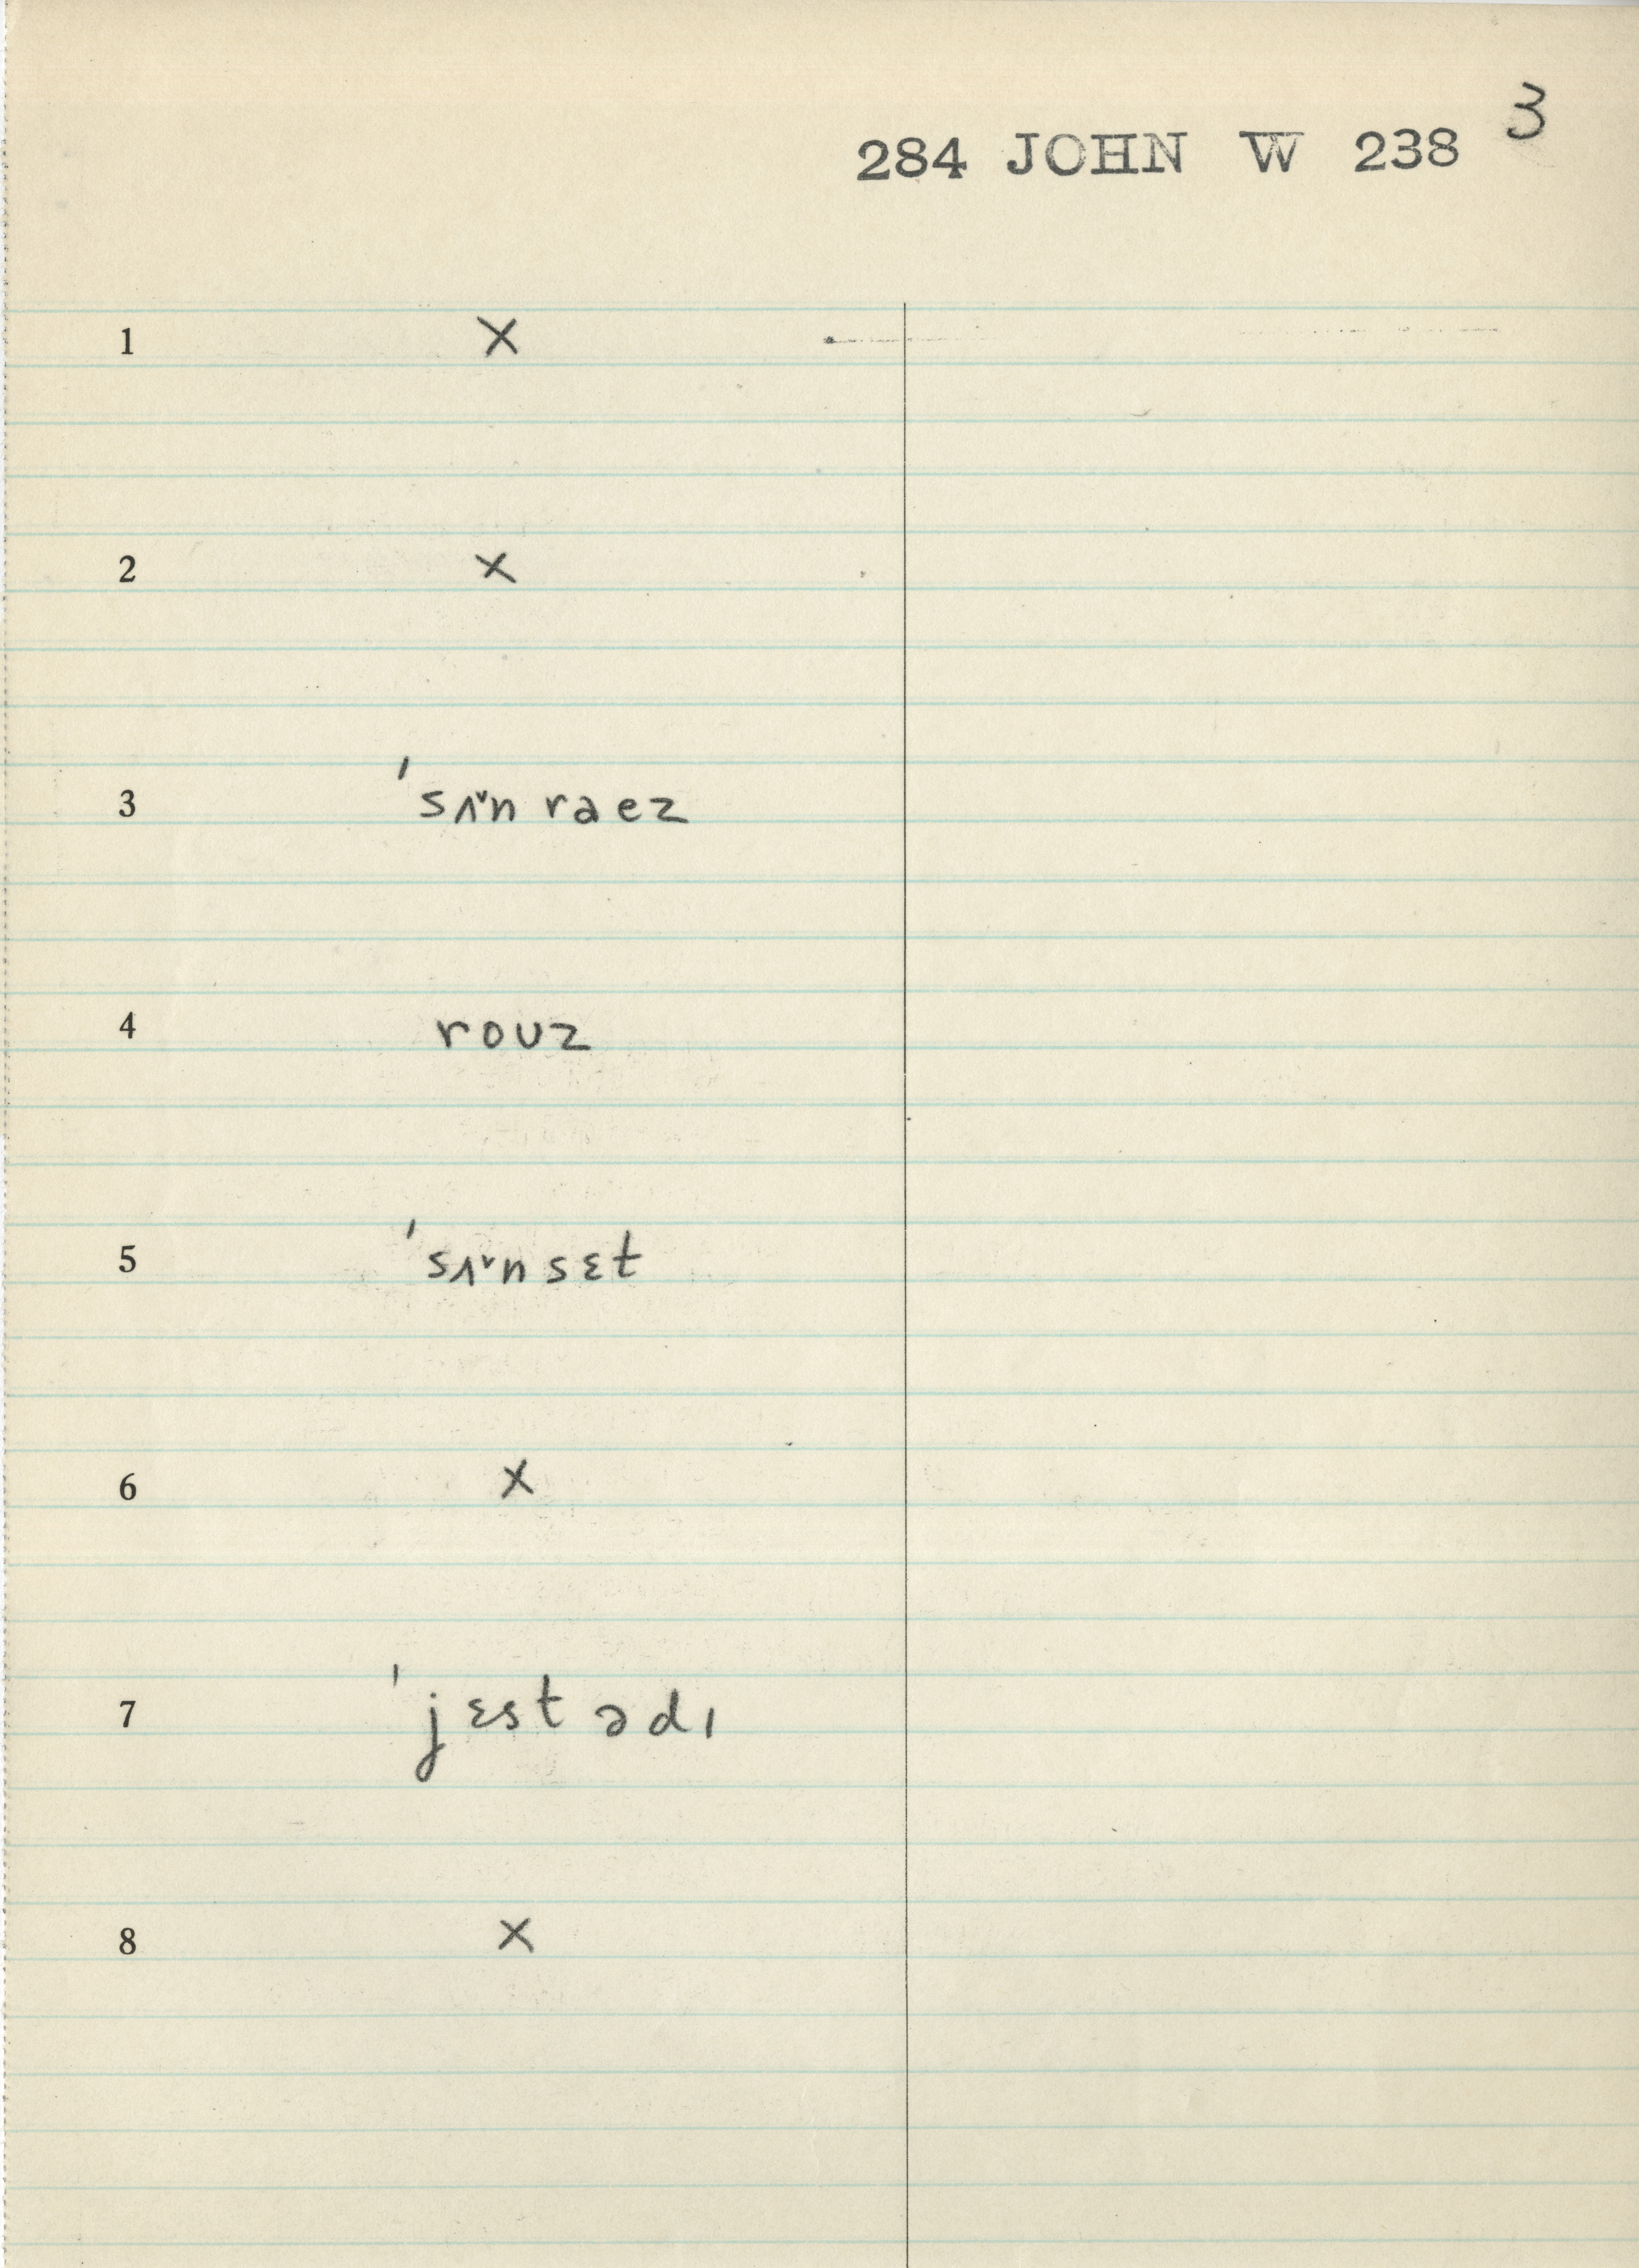 284 JOHN W 238 3
1 X
2 X
3 ˈsʌ˅n raez
4 roʊz
5 ˈsʌ˅nsɛt
6 X
7 ˈjɛstədɪ
8 X